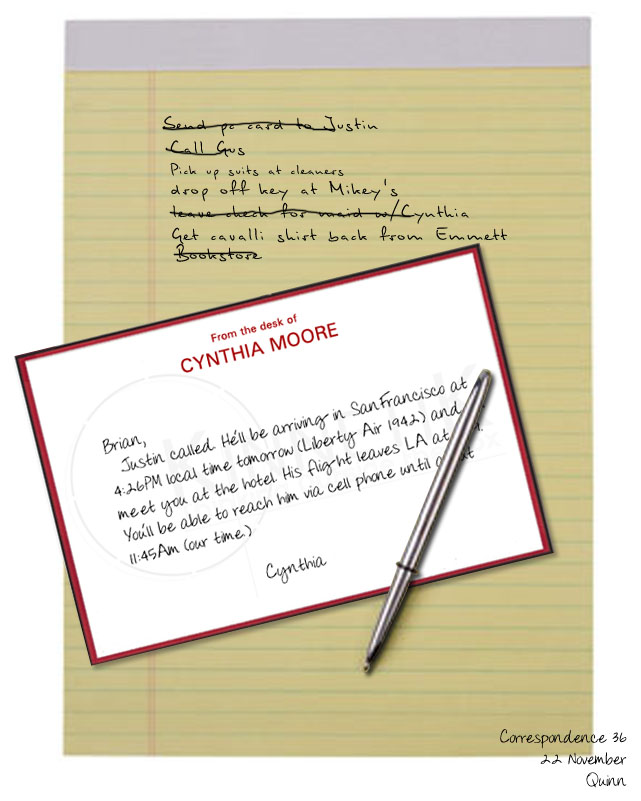 Send pc card to Justin
Call Gus
Pick up suits at cleaners
drop off key at Mikey's
leave check for maid w/Cynthia
Get cavalli shirt back from Emmett
Bookstore
From the desk of
CYNTHIA MOORE
Brian,
Justin called. He'll be arriving in San Francisco at
4:26PM local time tomorrow (Liberty Air 1942) and
meet you at the hotel. His flight leaves LA at
You'll be able to reach him via cell phone until
11:45Am (our time.)
Cynthia
Correspondence 36
22 November
Quinn